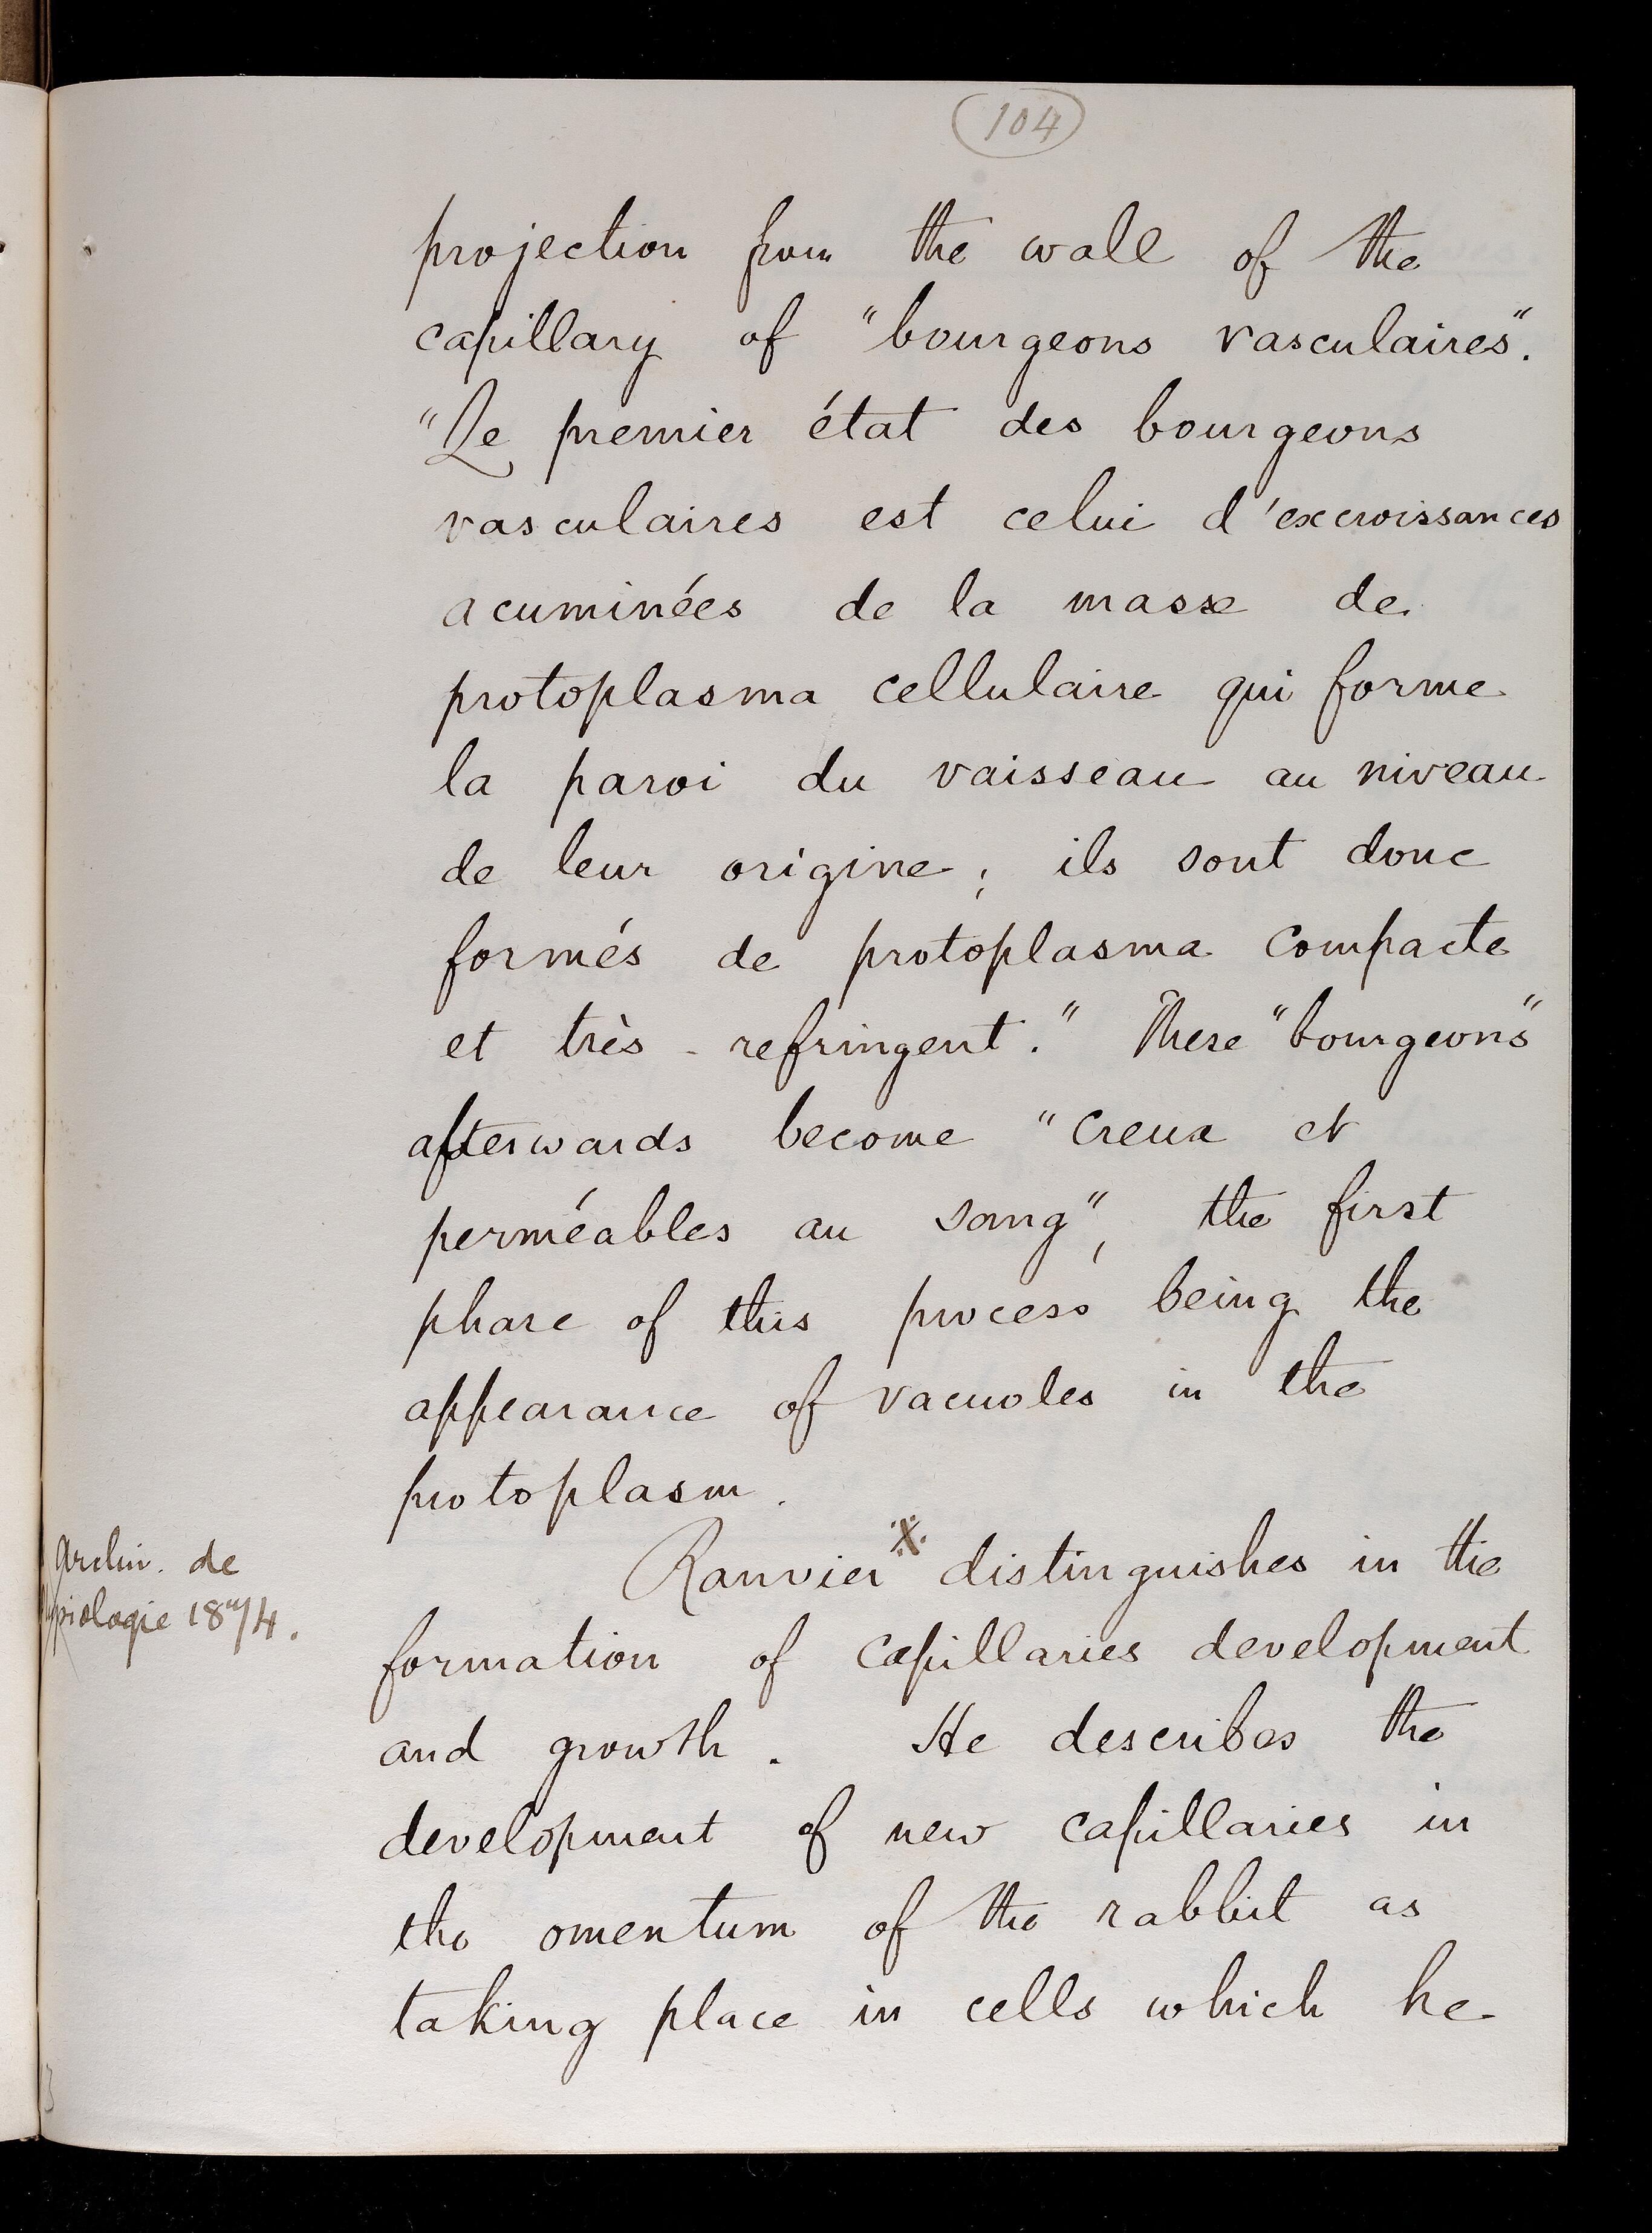 104
projection from the wall of the
capillary of "bourgeons vasculaires".
"Le premier état des bourgeons
vasculaires est celui d'excroissances
acuminées de la masse de
protoplasma cellulaire qui forme
la paroi du vaisseau au niveau
de leur origine; ils sont donc
formés de protoplasma compacte
et très-refringent." These "bourgeons"
afterwards become "creux et
perméables au sang", the first
phase of this process being the
appearance of vacuoles in the
protoplasm.
Ranvier X distinguishes in the
Archiv. de
formation of capillaries development
and growth. He describes the
development of new capillaries in
the omentum of the rabbit as
taking place in cells which he